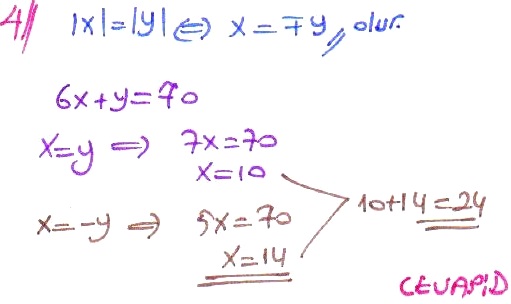 4// |x|=|y| ⇔ x=∓y,, olur.
6x+y=70
x=y ⇒ 7x=70
x=10
x=-y ⇒ 5x=70
x=14
10+14=24
CEVAP:D